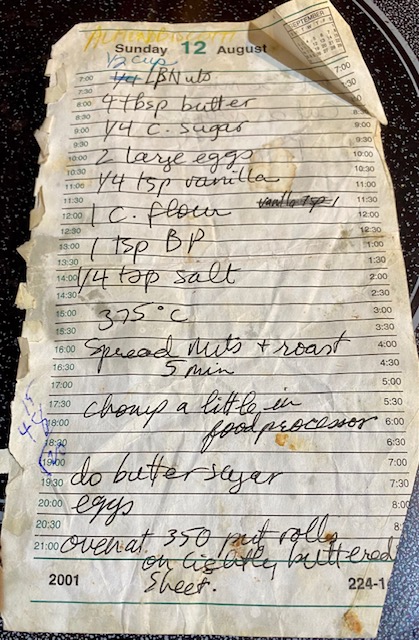 ALMOND BISCOTTI
SEPTEMBER
Sunday 12 August
1/2 cup
7:00 1/4 LB Nuts 7:00
7:30
8:00 4 tbsp butter
8:30
9:00 1/4 c. sugar
9:30
10:00 2 large eggs 10:00
10:30 10:30
11:00 1/4 tsp vanilla 11:00
11:30 vanilla 1 tsp 11:30
12:00 1 c. flour 12:00
12:30
13:00 1 tsp BP 1:00
13:30 1:30
14:00 1/4 tsp salt 2:00
14:30 2:30
15:00 375°C 3:00
15:30 3:30
16:00 Spread nuts + roast 4:00
16:30 5 min 4:30
17:00 5:00
17:30 chomp a little in 5:30
18:00 food processor 6:00
18:30 6:30
19:00 do butter sugar 7:00
19:30 7:30
20:00 eggs 8:00
20:30
21:00 oven at 350 put rolls
on lightly buttered
2001 sheet. 224-1